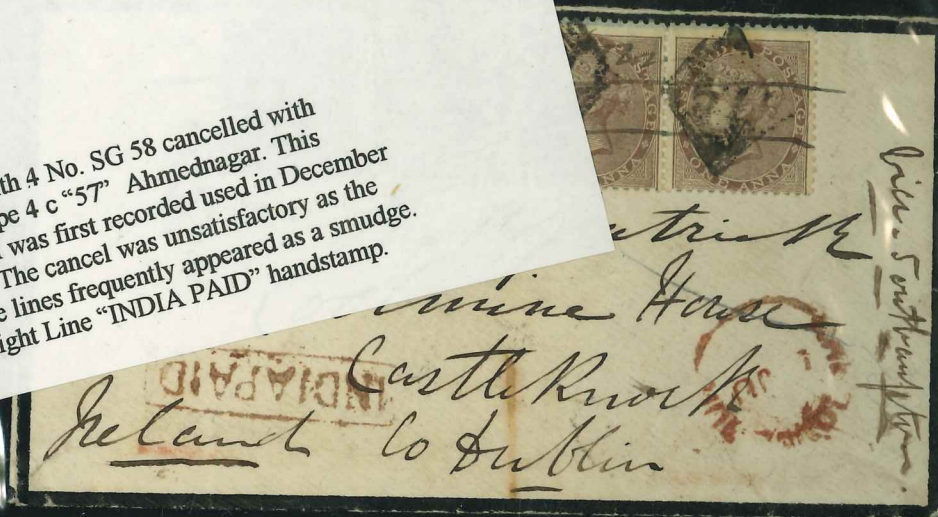 th 4 No. SG 58 cancelled with
pe 4 c “57” Ahmednagar. This
was first recorded used in December
The cancel was unsatisfactory as the
e lines frequently appeared as a smudge.
ight Line “INDIA PAID” handstamp.
POSTAGE
ONE ANNA
via Southampton.
atrick
House
Castleknock
Ireland Co Dublin
INDIA PAID